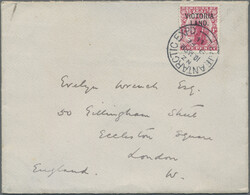 VICTORIA
LAND.
BRIT. ANTARCTIC EXPD.
Evelyn Wrench Esq.
50 Gillingham Street
Eccleston Square
London
W.
England.